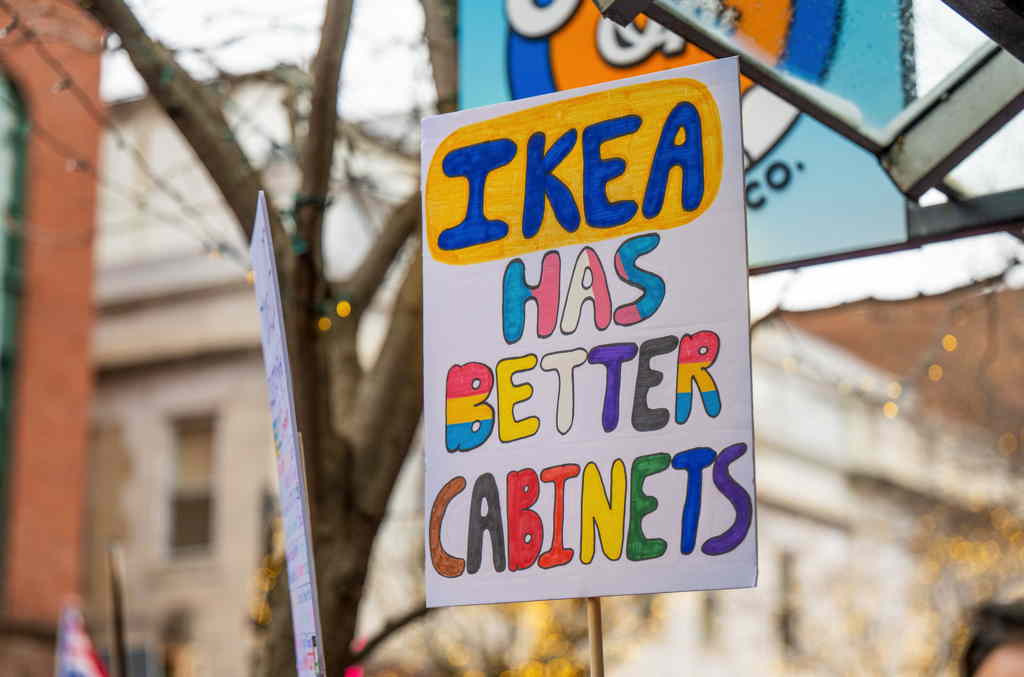 IKEA
HAS
BETTER
CABINETS
&
CO.